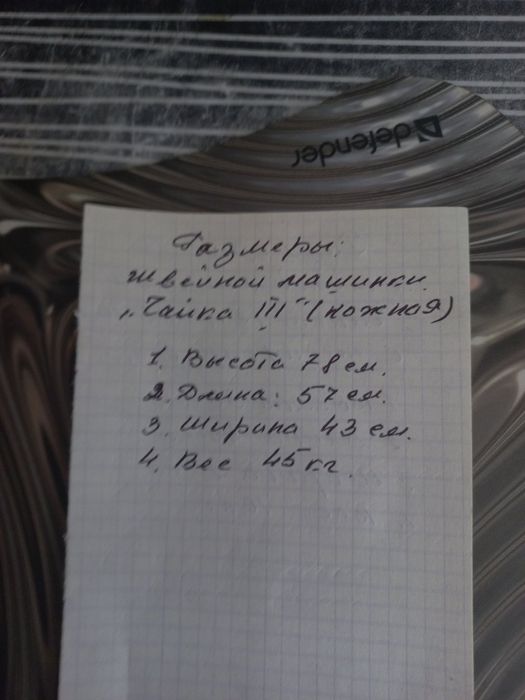 defender
Размеры:
швейной машинки
„Чайка III" (ножная)
1. Высота 78 см.
2. Длина: 57 см.
3. Ширина 43 см.
4. Вес 45 кг.